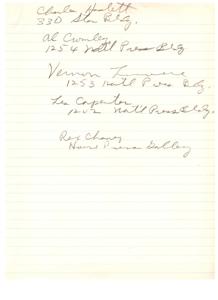 Charles Hazlett
330 Star Bldg.
Al Cromley
1254 Nat'l Press Bldg
Vernon
1253 Nat'l Press Bldg.
Les Carpenter
1202 Nat'l Press Bldg.
Rex Chaney
House Press Gallery